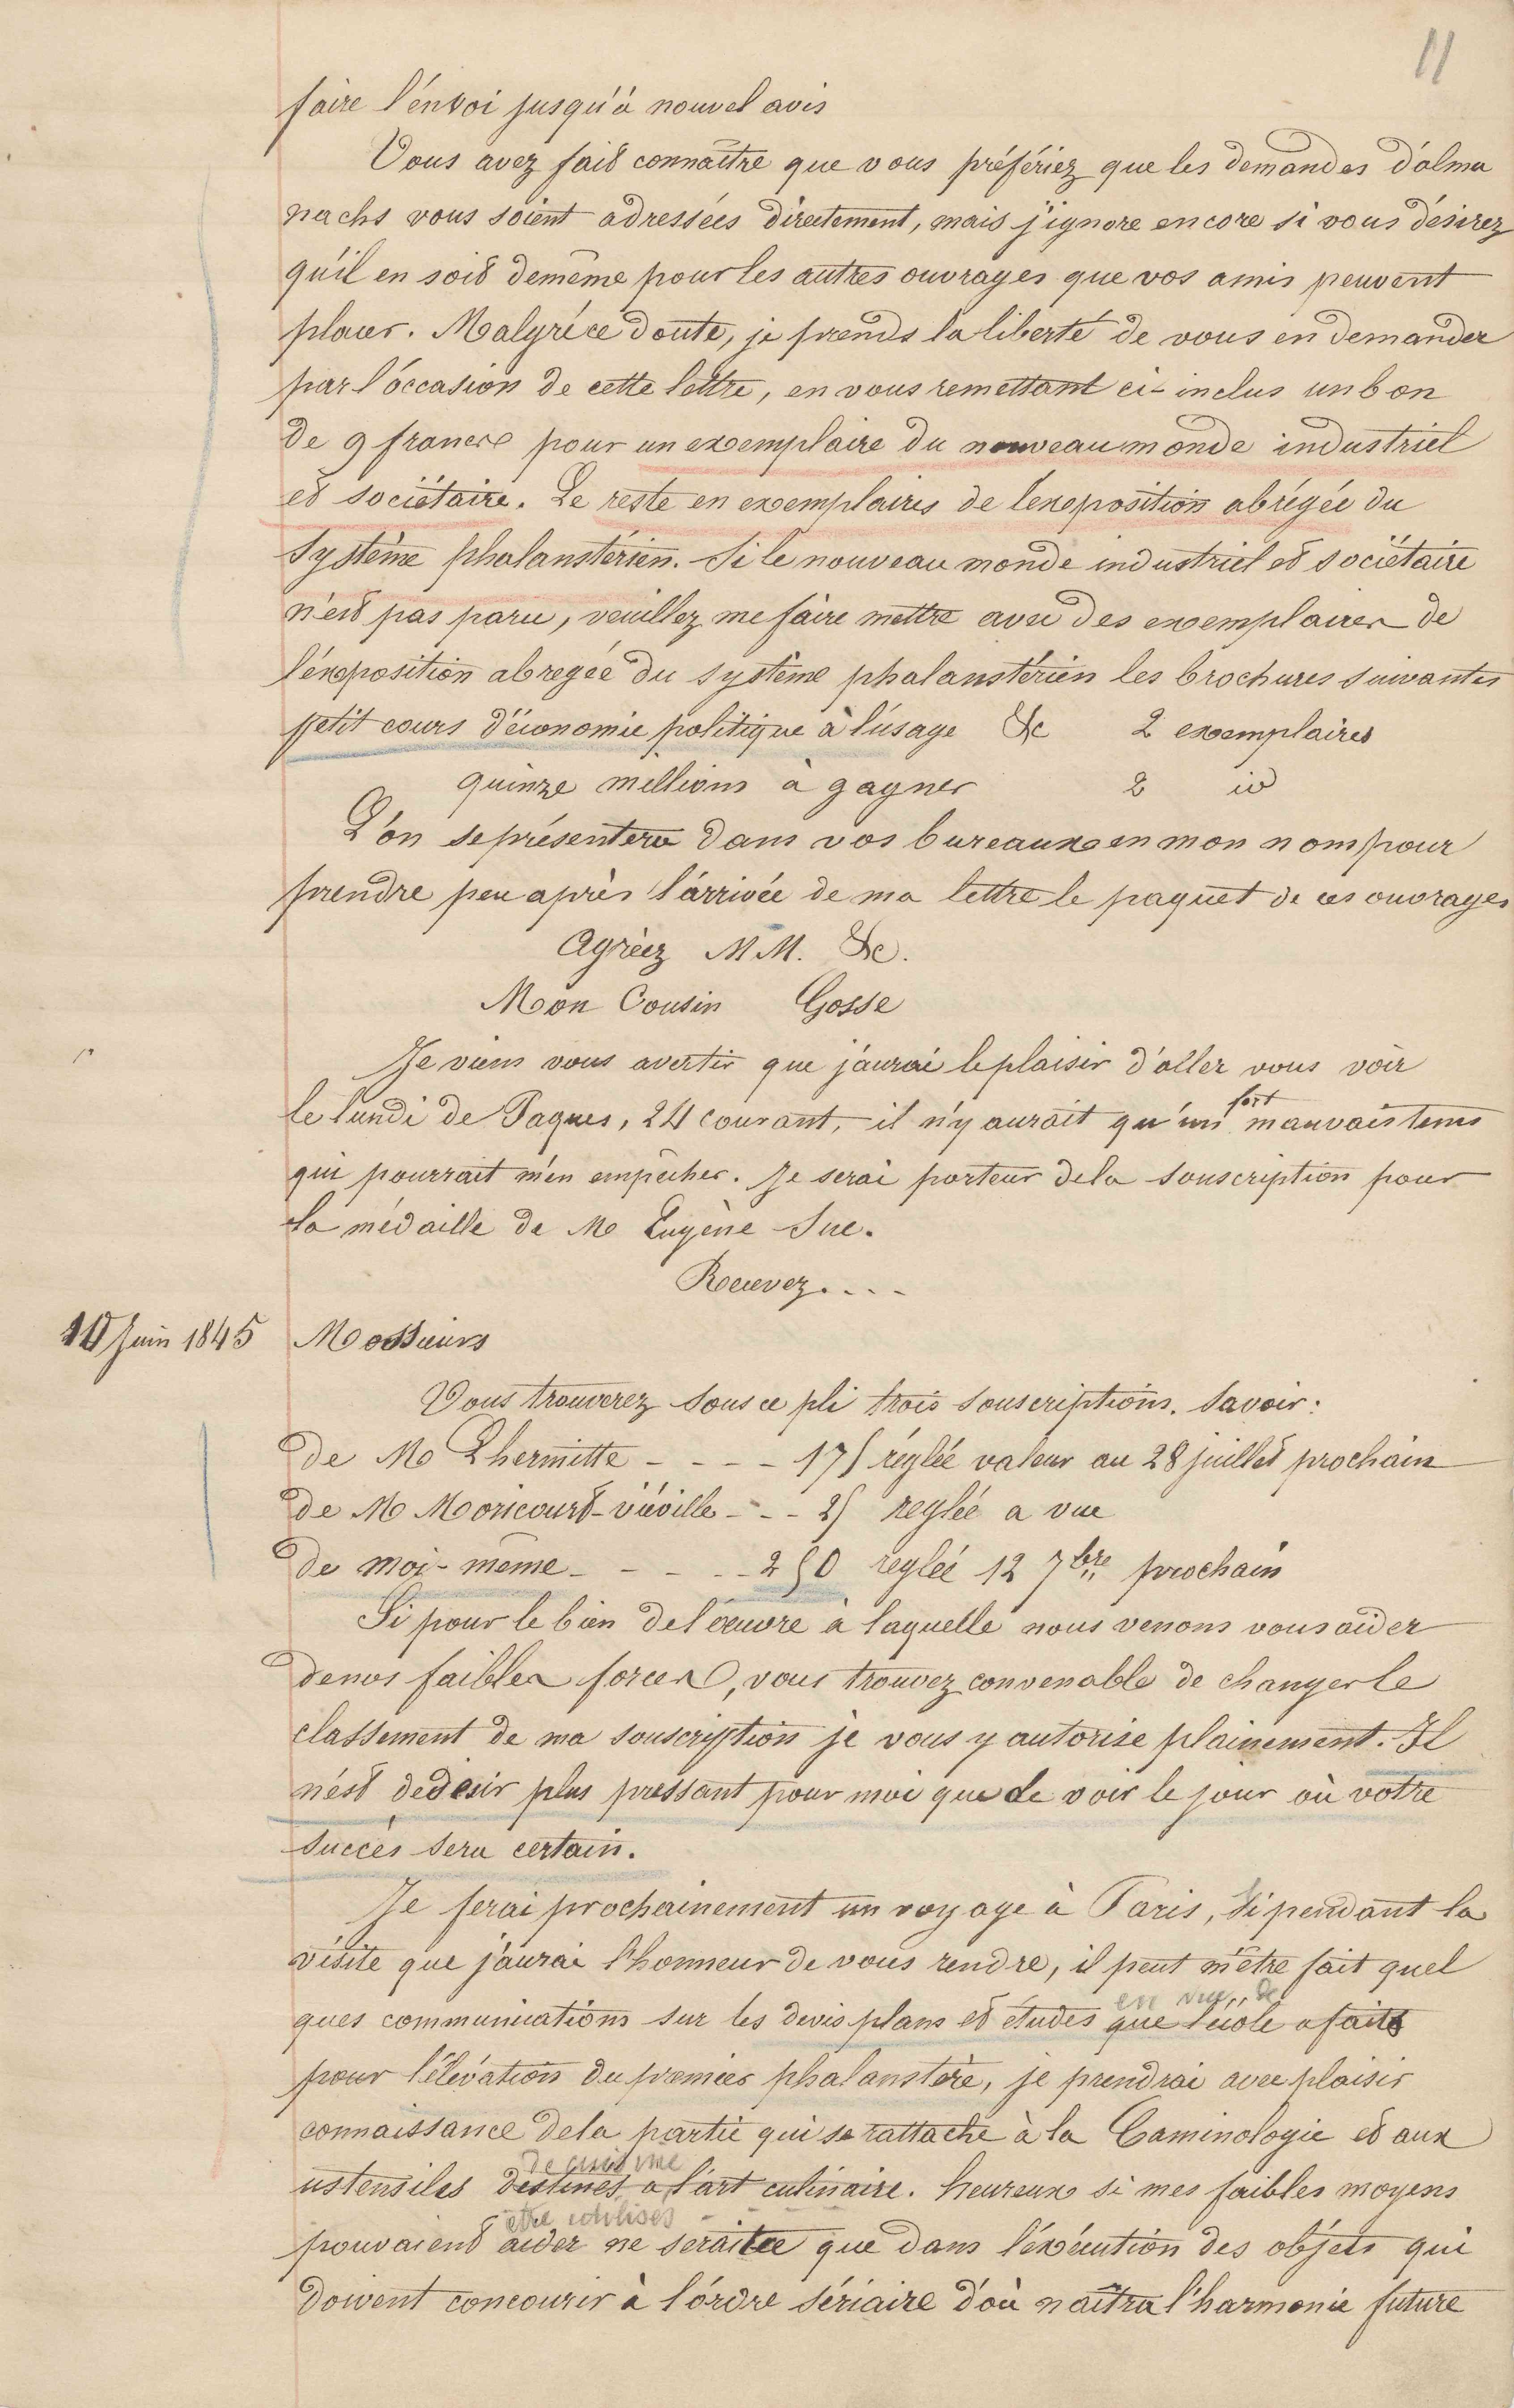 11
faire l'envoi jusqu'à nouvel avis
Vous avez fait connaître que vous préfériez que les demandes d'alma
nachs vous soient adressées directement, mais j'ignore encore si vous désirez
qu'il en soit demême pour les autres ouvrages que vos amis peuvent
placer. Malgré ce doute, je prends la liberté de vous en demander
par l'occasion de cette lettre, en vous remettant ci-inclus un bon
de 9 francs pour un exemplaire du nouveau monde industriel
et sociétaire. Le reste en exemplaires de l'exposition abrégée du
système phalanstérien. Si le nouveau monde industriel et sociétaire
n'est pas paru, veuillez me faire mettre avec des exemplaires de
l'exposition abregée du système phalanstérien les brochures suivantes
petit cours d'économie politique à l'usage &c 2 exemplaires
quinze millions à gagner 2 id
L'on se présentera dans vos bureaux en mon nom pour
prendre peu après l'arrivée de ma lettre le paquet de ces ouvrages
Agréez MM. &c.
Mon Cousin Gosse
Je viens vous avertir que j'aurai le plaisir d'aller vous voir
le lundi de Paques, 24 courant, il n'y aurait qu'un fort mauvais tems
qui pourrait m'en empêcher. Je serai porteur de la souscription pour
la médaille de M Eugène Sue.
Recevez....
10 Juin 1845 Messieurs
Vous trouverez sous ce pli trois souscriptions. Savoir:
de M Lhermitte - - - - 17f réglée valeur au 28 juillet prochain
de M Moricourt-viéville - - - 2f reglée a vue
de moi-même - - - - - 250 reglée 12 7bre prochain
Si pour le bien de l'œuvre à laquelle nous venons vous aider
de nos faibles forces, vous trouvez convenable de changer le
classement de ma souscription je vous y autorise plainement. Il
n'est de desir plus pressant pour moi que de voir le jour où votre
succès sera certain.
Je ferai prochainement un voyage à Paris, Si pendant la
visite que j'aurai l'honneur de vous rendre, il peut m'être fait quel
ques communications sur les devis plans et études que l'école a faits
en vue de
pour l'élévation du premier phalanstère, je prendrai avec plaisir
connaissance de la partie qui se rattache à la Caminologie et aux
ustensiles destinés a l'art culinaire. heureux si mes faibles moyens
de cuisine
être utilisés
pouvaient aider ne serait ce que dans l'exécution des objets qui
doivent concourir à l'ordre sériaire d'où naîtra l'harmonie future